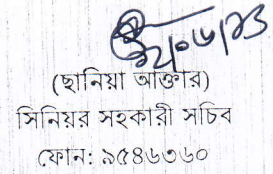 ২০/৬/১৩
(ছানিয়া আক্তার)
সিনিয়র সহকারী সচিব
ফোন: ৯৫৪৬৩৬০